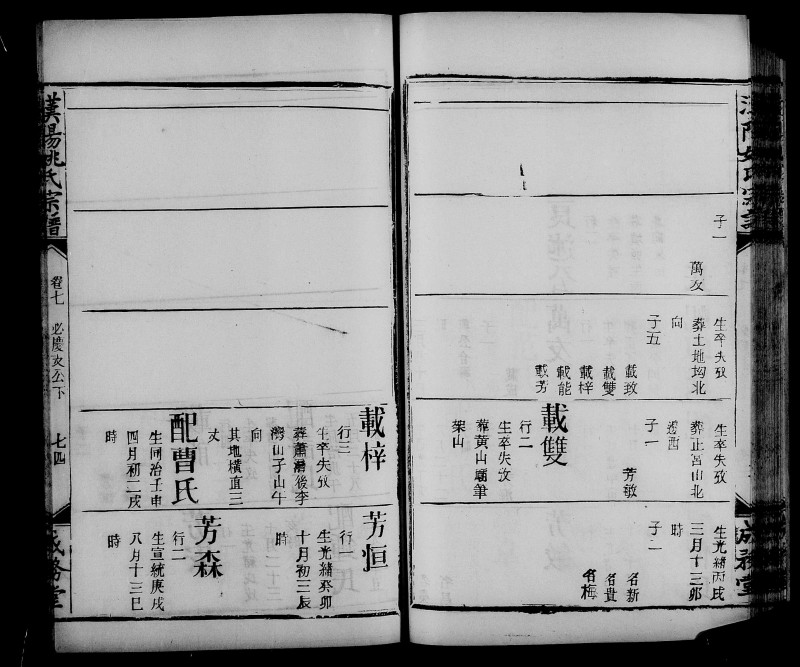 子一
萬友
生卒失攷
葬土地坳北
向
子五
載玫
載雙
載梓
載能
載芳
生卒失攷
葬正宮山北
邊酉
子一
芳敏
載雙
行二
生卒失攷
葬黃山廟筆
架山
生光緒丙戌
三月十三卯
時
子二
名新
名貴
名梅
漢陽姚氏宗譜
卷七
七四
成務堂
載梓
行三
生卒失攷
葬蕭灣後李
灣山子山午
向
其地橫直三
丈
配曹氏
生同治壬申
四月初二戌
時
芳恒
行一
生光緒癸卯
十月初三辰
時
芳森
行二
生宣統庚戌
八月十三巳
時